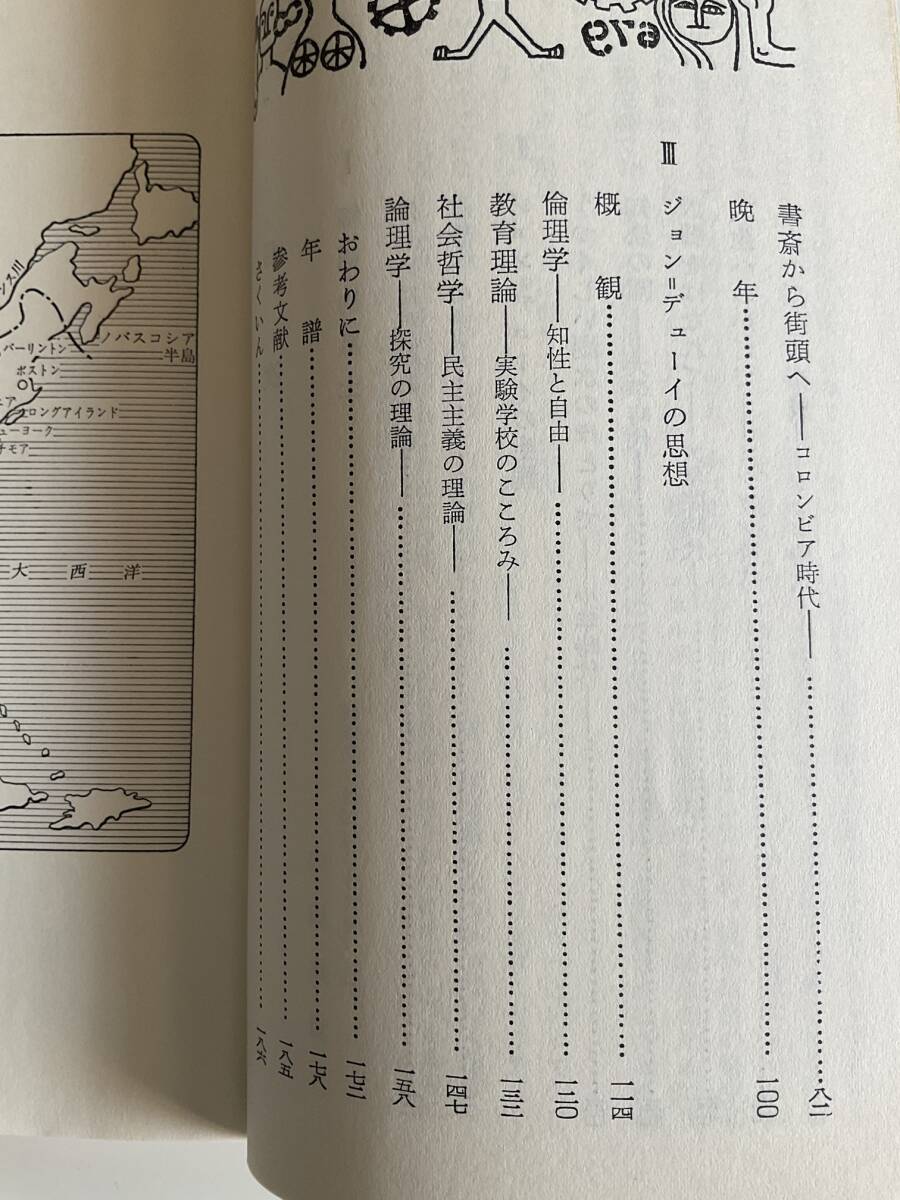 679
書斎から街頭へ——コロンビア時代——……八二
晩年……一〇〇
Ⅲ ジョン=デューイの思想
概観……一一四
倫理学——知性と自由——……一二〇
教育理論——実験学校のこころみ——……一三二
社会哲学——民主主義の理論——……一四七
論理学——探究の理論——……一五八
おわりに……一七三
年譜……一七八
参考文献……一八五
さくいん……一八六
ンス川
ノバスコシア
半島
バーリントン
ボストン
ロングアイランド
ューヨーク
チモア
大西洋